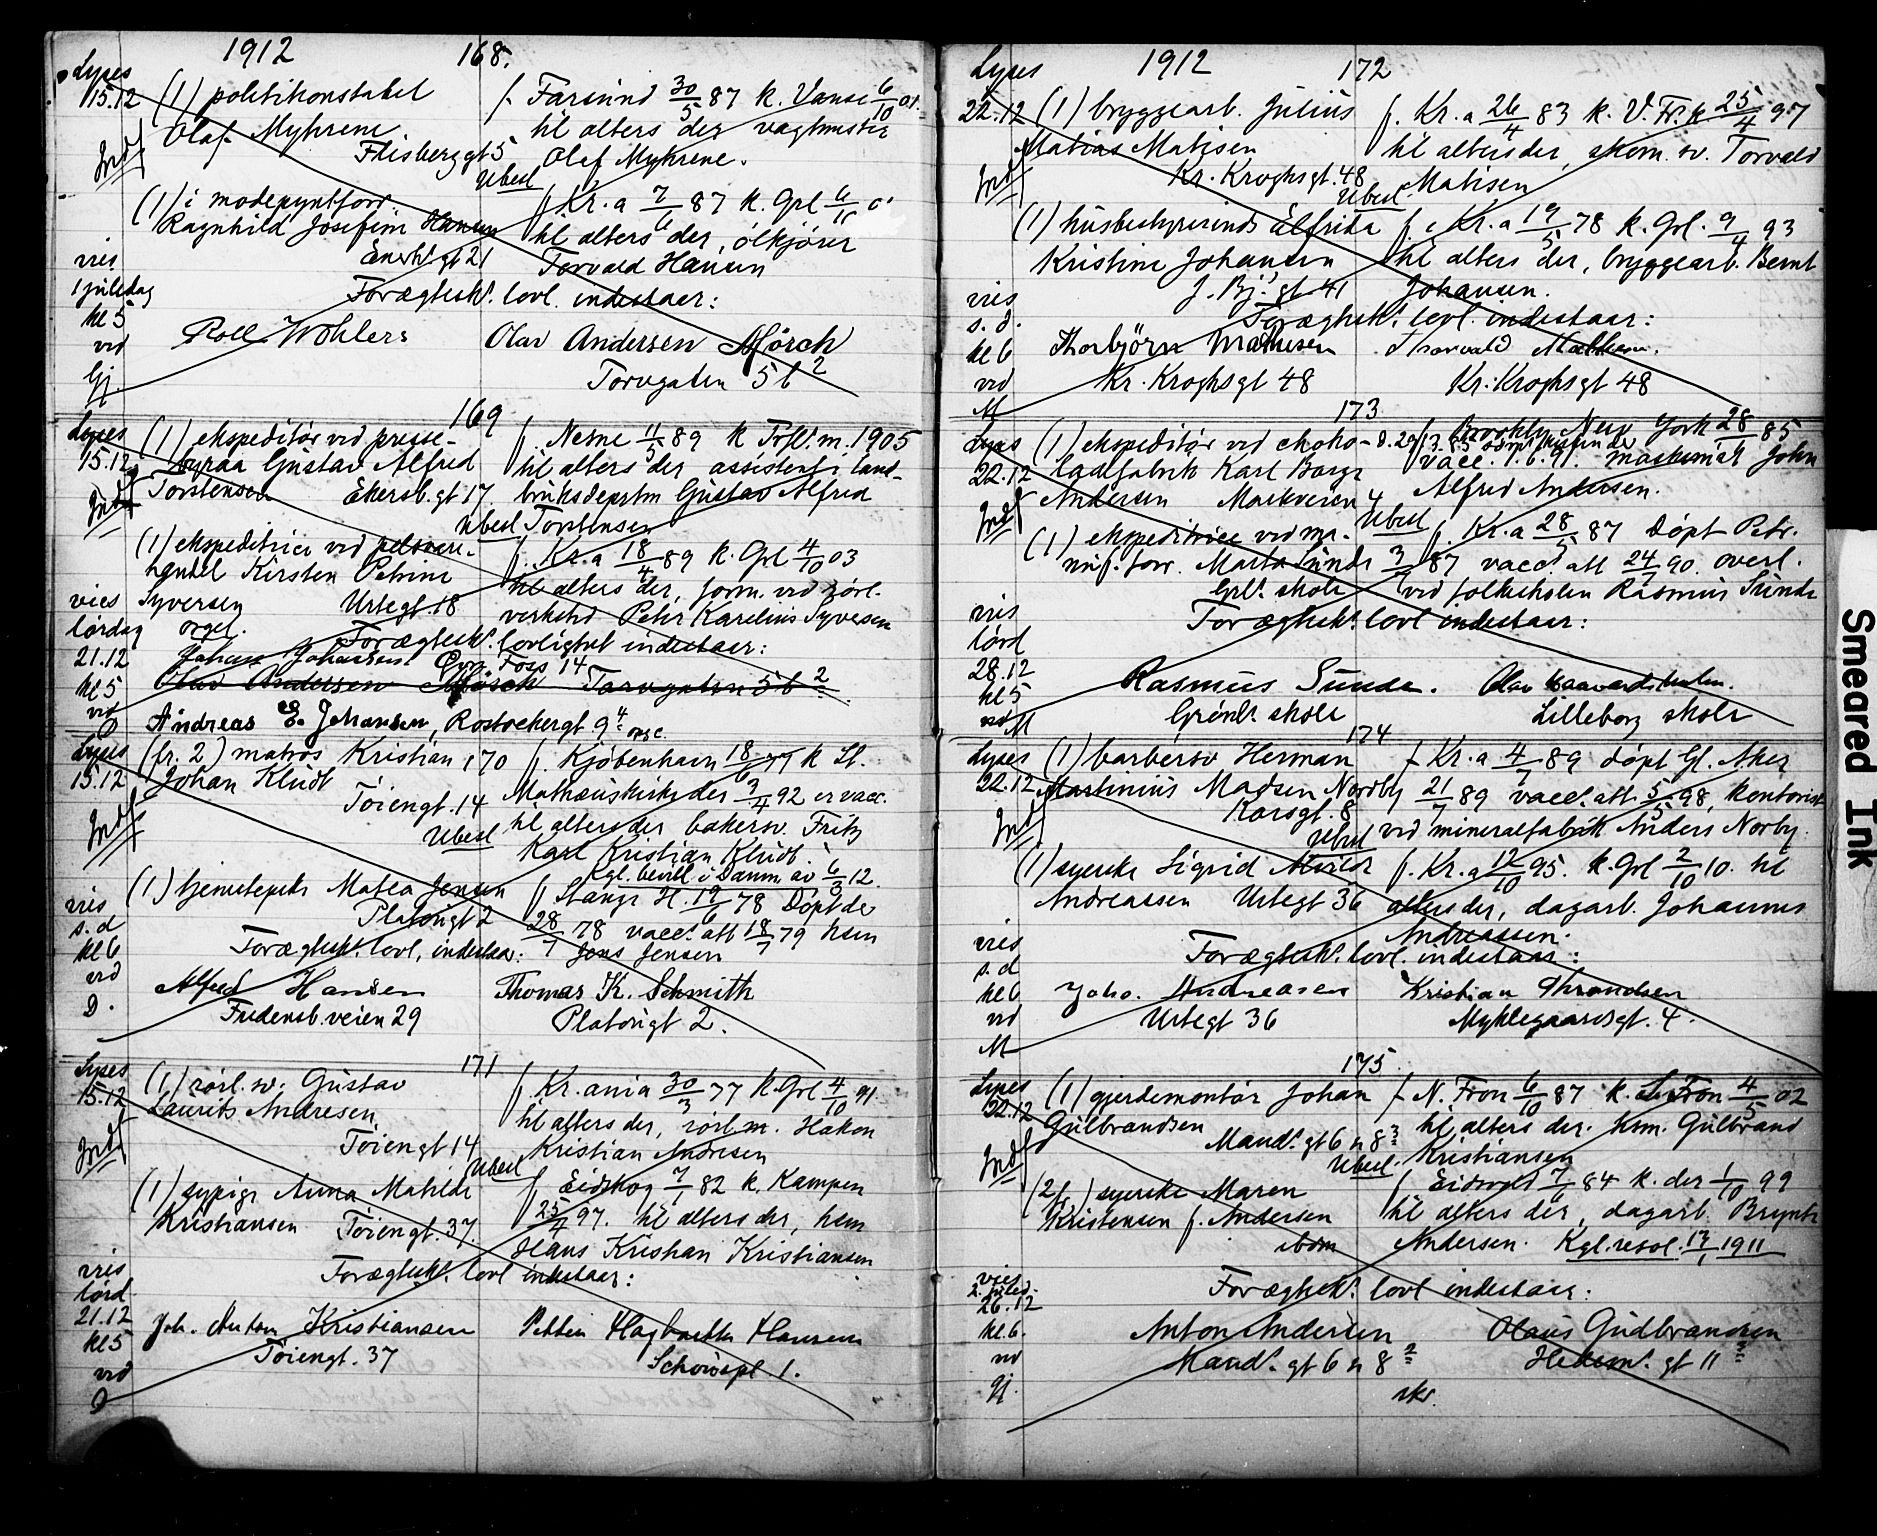 1912
168.
Lyses
15.12 (1) politikonstabel
Olaf Myhrene
Flisberggt 5
f. Farsund 30/5 87 k. Vanse 6/10 01.
til alters der vagtmester
Olaf Myhrene.
Ubesl
(1) i modepyntforr.
Ragnhild Josefine Hansen
Enerh. gt 21
f. Kr.a 7/6 87 k. Grl 6/10 0
til alters der, ølkjører
Torvald Hansen
vies
1 juledag
kl 5
vid
Gj.
Forægtesk. lovl. indestaar:
Roll Wøhlers
Olav Andersen Mørch
Torvgaten 5 b 2
169
Lyses
15.12
(1) ekspeditør ved presse-
byraa Gustav Alfred
Torstensen Ekersb.gt 17.
f. Nesne 11/5 89 k Trfl. m. 1905
til alters der assistent i land-
bruksdeprtm Gustav Alfred
Ubesl Torstensen
(1) ekspeditrice ved pelsvare-
handel Kirsten Petrine
Syversen Urtegt. 18
f. Kr.a 18/4 89 k. Grl 4/10 03
til alters der, form. ved rørl.
verksted Peter Karelius Syversen
vies
lørdag
21.12
kl 5
vid
orgel.
Forægtesk. lovlighet indestaar:
Johan Johansen Gen. Foss 14
Olav Andersen Mørch Torvgaten 5 b 2
Andreas E. Johansen, Rostockergt 9 4
170
Lyses
15.12
(fr. 2) matros Kristian
Johan Kludt
Tøiengt. 14
f. Kjøbenhavn 18/6 77 k St.
Mathæuskirke der 3/4 92 er vacc.
til alters der bakersv. Fritz
Karl Kristian Kludt.
Ubesl
Kgl. bevill. i Danm. av 6/3 12.
(1) tjenestepike Matea Jensen
Platousgt 2
f. Stange H. 19/6 78 Døpt der
28/7 78 vacc. att 18/7 79 hsm
Jens Jensen
vies
s. d
kl 6
vid
D.
Forægtesk. lovl. indestaa:
Alfred Hansen
Fredensb.veien 29
Thomas K. Schmith
Platousgt 2.
171
Lyses
15.12
(1) rørl. sv. Gustav
Laurits Andresen
Tøiengt 14
f. Kr.ania 30/3 77 k. Grl 4/10 91
til alters der, rørl m. Hakon
Kristian Andresen
Ubesl
(1) sypige Anna Matilde
Kristiansen Tøiengt. 37.
f. Eidskog 7/1 82 k. Kampen
25/4 97. til alters der, hsm
Hans Kristian Kristiansen
vies
lørd
21.12
kl 5
vid
Forægtesk. lovl indestaar:
Joh. Anton Kristiansen
Tøiengt. 37
Petter Hagbarth Hansen
Schousspl. 1.
1912
172
Lyses
22.12 (1) bryggearb. Julius
Matias Matisen
Kr. Kroghsgt. 48
f. Kr. a 26/4 83 k. V. Fr. k 25/4 97
til alters der, skom. sv. Torvald
Matisen
Ubesl.
(1) husbestyrerinde Elfrida
Kristine Johansen
J. Bj. gt. 41
f. Kr.a 19/5 78 k. Grl. 9/4 93
til alters der, bryggearb. Bernt
Johansen.
vies
s. d.
kl 6
vid
M
Forægtesk. lovl. indestaar:
Thorbjørn Mathisen Thorvald Mathisen.
Kr. Kroghsgt 48 Kr. Kroghsgt 48
173
Lyses
22.12
(1) ekspeditør ved choko-
ladefabrik Karl Borge
Andersen Markveien 4
f. Brooklyn New York 28/1 85
vacc. 1.6.91. maskinist John
Alfred Andersen.
Ubesl
(1) ekspeditrice ved
unif. forr. Marta Sunde
Grl. skole
f. Kr.a 28/5 87 Døpt Petr.
3/7 87 vacc. att 24/7 90. overl.
ved folkeskolen Rasmus Sunde
vies
lørd
28.12
kl 5
vid M
Forægtesk. lovl indestaar:
Rasmus Sunde.
Grønl. skole
Lilleborg skole
174
Lyses
22.12
(1) barbersv Herman
Martinius Madsen Nordby
Korsgt. 8
f Kr.a 4/7 89 døpt Gl. Aker
21/7 89 vacc. att 5/5 98, kontorist
ved mineralfabrik Anders Norby.
Ubesl
(1) syerske Sigrid Alvilde
Andreassen Urtegt 36
f. Kr.a 12/10 95. k. Grl 2/10 10. til
alters der, dagarb. Johannes
Andreassen.
vies
s. d
kl 6
vid
M
Forægtesk. lovl. indestaar:
Joho. Andreasen
Urtegt 36
Kristian Throndsen
Myklegaardsgt. 4.
175
Lyses
22.12
(1) gjerdemontør Johan
Gulbrandsen
Maud. gt 6 n 8 3
f N. Fron 6/10 87 k. S. Fron 4/5 02
til alters der. hsm. Gulbrand
Kristiansen
Ubesl.
(2 fr.) syerske Maren
Kristensen f. Andersen
ibdm
f Eidsvold 7/6 84 k. der 1/10 99
til alters der, dagarb. Brynte
Andersen. Kgl. resol. 13/1 1911
vies
2. juled.
26.12
kl. 6.
vid
Gj.
Forægtesk. lovl indestaar:
Anton Andersen
Maud. gt 6 n 8 2
Olaus Gudbrandsen
Hedem. gt 11
skr.
Smeared Ink